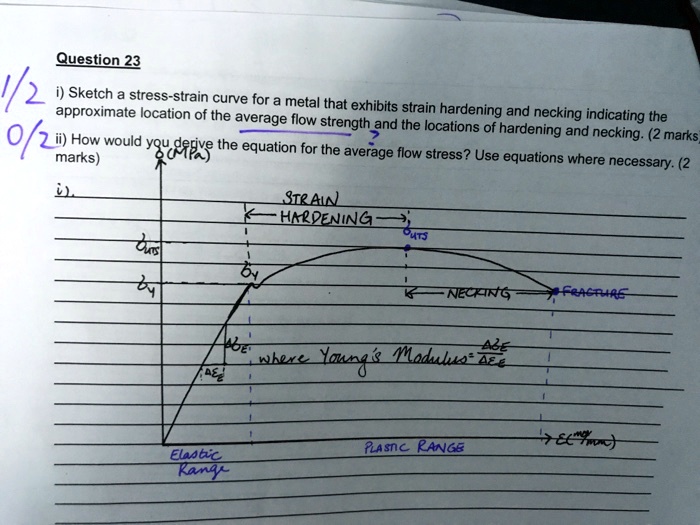 Question 23
1/2
i) Sketch a stress-strain curve for a metal that exhibits strain hardening and necking indicating the
approximate location of the average flow strength and the locations of hardening and necking. (2 marks
?
0/2
ii) How would you derive the equation for the average flow stress? Use equations where necessary. (2
marks)
σ(MPa)
i).
STRAIN
HARDENING
σUTS
σUTS
σy
σy
NECKING
FRACTURE
ΔσE
where Young's Modulus = ΔσE
ΔεE
ΔεE
ε(mm/mm)
Elastic
Range
PLASTIC RANGE